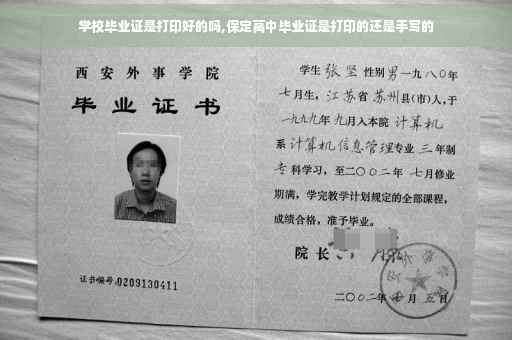 学校毕业证是打印好的吗,保定高中毕业证是打印的还是手写的
西安外事学院
毕业证书
证书编号:0209130411
学生 张坚 性别 男 一九八〇年
七月生, 江苏省 苏州 县(市)人,于
一九九九年 九月入本院 计算机
系 计算机信息管理 专业 三 年制
专科学习,至二〇〇二年 七月修业
期满,学完教学计划规定的全部课程,
成绩合格,准予毕业。
院长
二〇〇二年 月 五日